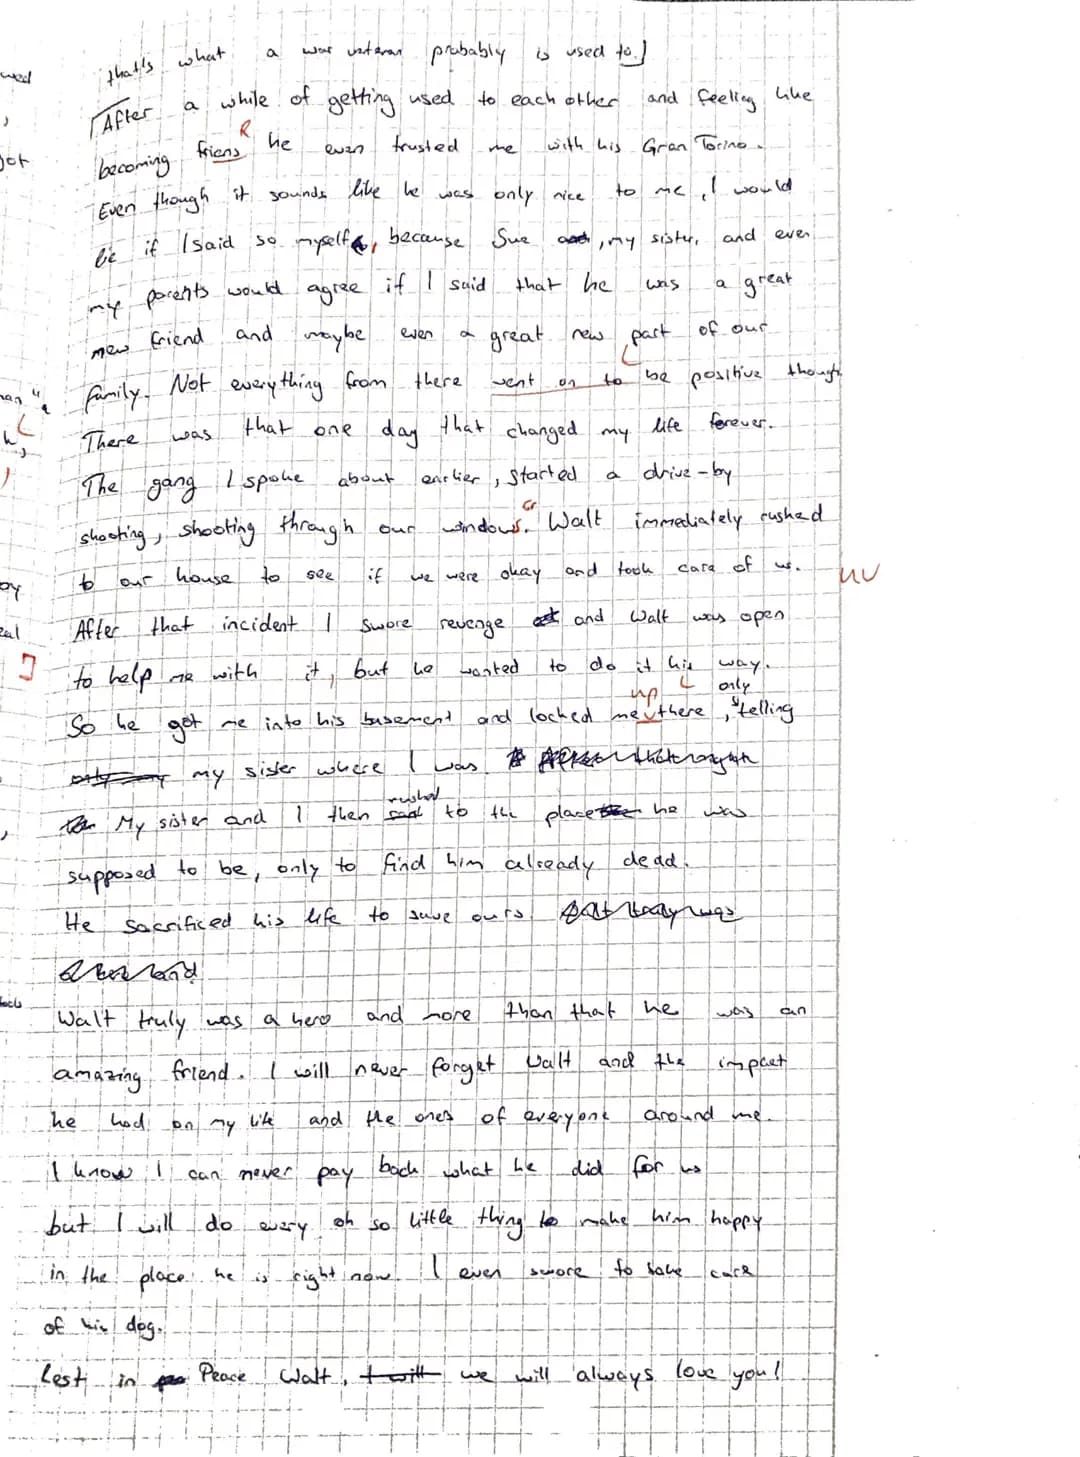 that's what a war veteran probably is used to.]
wed
After a while of getting used to each other and feeling like
becoming friens he even trusted me with his Gran Torino.
R
got
Even though it sounds like he was only nice to me, I would
lie if I said so myself, because Sue , my sister, and even
my parents would agree if I said that he was a great
new friend and maybe even a great new part of our
family. Not everything from there went on to be positive though.
There was that one day that changed my life forever.
The gang I spoke about earlier, started a drive-by
shooting, shooting through our windows. Walt immediately rushed
Gr
to our house to see if we were okay and took care of us.
UV
After that incident I swore revenge and Walt was open
to help me with it, but he wanted to do it his way.
up only
So he got me into his basement and locked me there, telling
my sister where I was.
rushed
My sister and I then to the place he was
supposed to be, only to find him already dead.
He sacrificed his life to save ours.
Walt truly was a hero and more than that he was an
amazing friend. I will never forget Walt and the impact
he had on my life and the ones of everyone around me.
I know I can never pay back what he did for us
but I will do every oh so little thing to make him happy
in the place he is right now. I even swore to take care
of his dog.
Rest in Peace Walt, we will always love you!